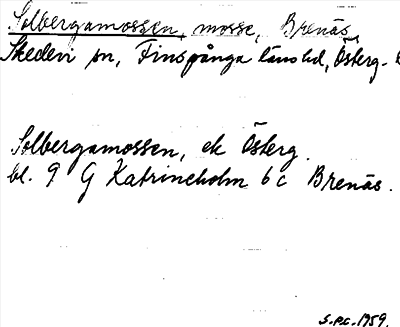 Solbergamossen, mosse, Brenäs,
Skedevi sn, Finspånga länshd, Österg.
Solbergamossen, ek Österg.
bl. 9 G Katrineholm 6 c Brenäs.
S.P.C. 1959.